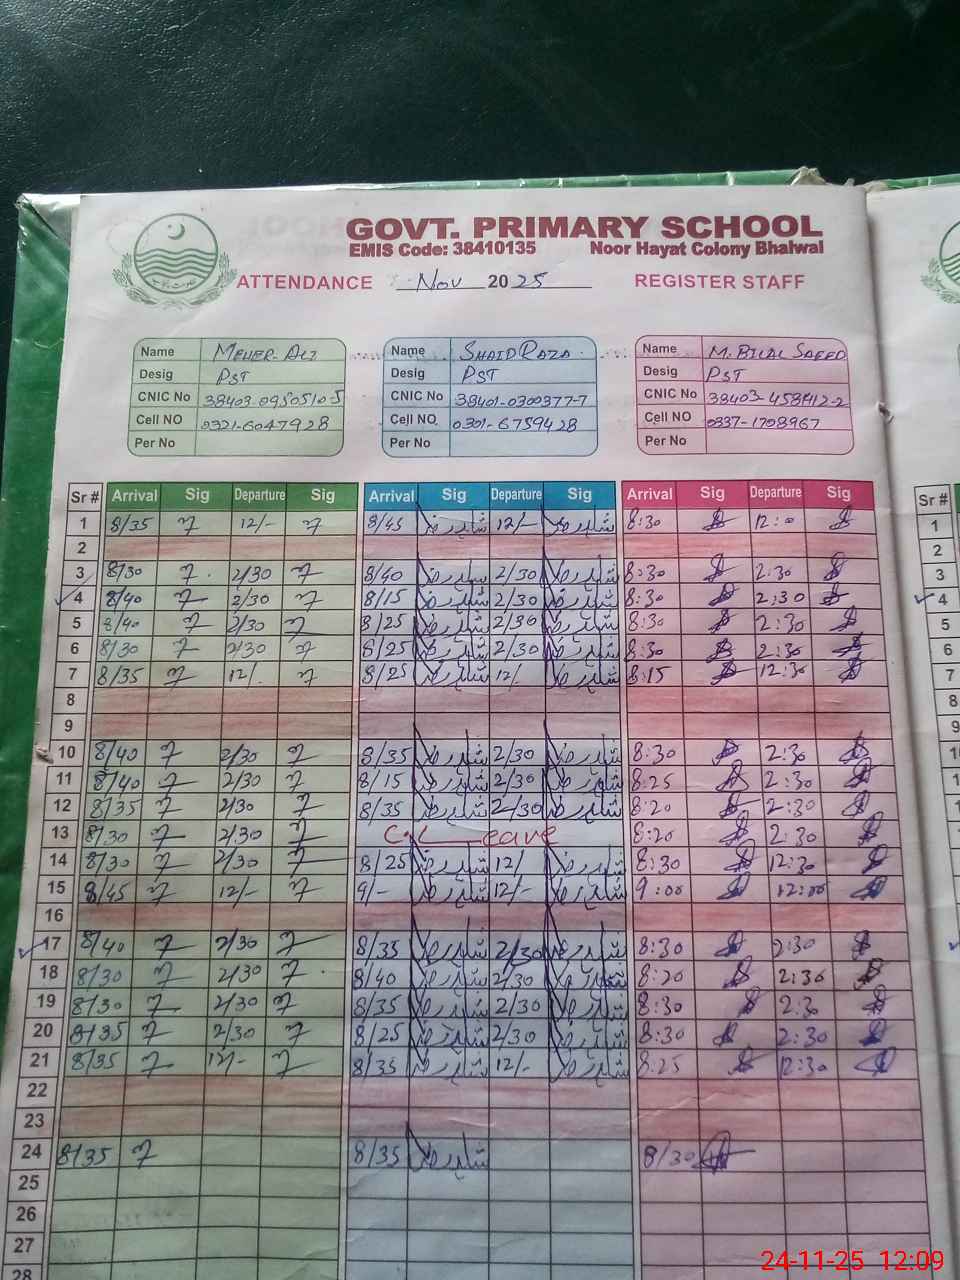 GOVT. PRIMARY SCHOOL
EMIS Code: 38410135 Noor Hayat Colony Bhalwal
ATTENDANCE Nov 2025 REGISTER STAFF
Name MEHER-ALI Name SHAID RAZA. Name M. BILAL SAEED
Desig PST Desig PST Desig PST
CNIC No 38403-0950510-5 CNIC No 38401-0300377-7 CNIC No
Cell NO 0321-6047928 Cell NO 0301-6759428 Cell NO 0337-1708967
Per No Per No Per No
Sr # Arrival Sig Departure Sig Arrival Sig Departure Sig Arrival Sig Departure Sig Sr #
1 8/35 12/- 8/45 شاہد رضا 12/- شاہد رضا 8:30 12:0 1
2 2
3 8/30 2/30 8/40 شاہد رضا 2/30 شاہد رضا 8:30 2:30 3
4 8/40 2/30 8/15 شاہد رضا 2/30 شاہد رضا 8:30 2:30 4
5 8/40 2/30 8/25 شاہد رضا 2/30 شاہد رضا 8:30 2:30 5
6 8/30 2/30 8/25 شاہد رضا 2/30 شاہد رضا 8:30 2:30 6
7 8/35 12/. 8/25 شاہد رضا 12/ شاہد رضا 8:15 12:30 7
8 8
9 9
10 8/40 2/30 8/35 شاہد رضا 2/30 شاہد رضا 8:30 2:30
11 8/40 2/30 8/15 شاہد رضا 2/30 شاہد رضا 8:25 2:30
12 8/35 2/30 8/35 شاہد رضا 2/30 شاہد رضا 8:20 2:30
13 8/30 2/30 C. Leave 8:20 2:30
14 8/30 2/30 8/25 شاہد رضا 12/ شاہد رضا 8:30 12:30
15 8/45 12/- 9/- شاہد رضا 12/- شاہد رضا 9:00 12:00
16
17 8/40 2/30 8/35 شاہد رضا 2/30 شاہد رضا 8:30 2:30
18 8/30 2/30 8/40 شاہد رضا 2/30 شاہد رضا 8:20 2:30
19 8/30 2/30 8/35 شاہد رضا 2/30 شاہد رضا 8:30 2:30
20 8/35 2/30 8/25 شاہد رضا 2/30 شاہد رضا 8:30 2:30
21 8/35 12/- 8/35 شاہد رضا 12/- شاہد رضا 8:25 12:30
22
23
24 8/35 8/35 شاہد رضا 8/30
25
26
27
28
24-11-25 12:09